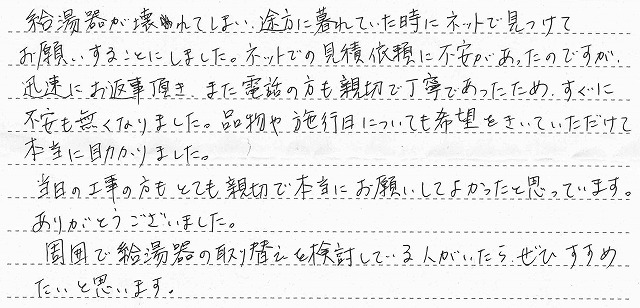 給湯器が壊れてしまい、途方に暮れていた時にネットで見つけて
お願いすることにしました。ネットでの見積依頼に不安があったのですが、
迅速にお返事頂き、また電話の方も親切で丁寧であったため、すぐに
不安も無くなりました。品物や施行日についても希望をきいていただけて
本当に助かりました。
当日の工事の方もとても親切で本当にお願いしてよかったと思っています。
ありがとうございました。
周囲で給湯器の取り替えを検討している人がいたら、ぜひすすめ
たいと思います。